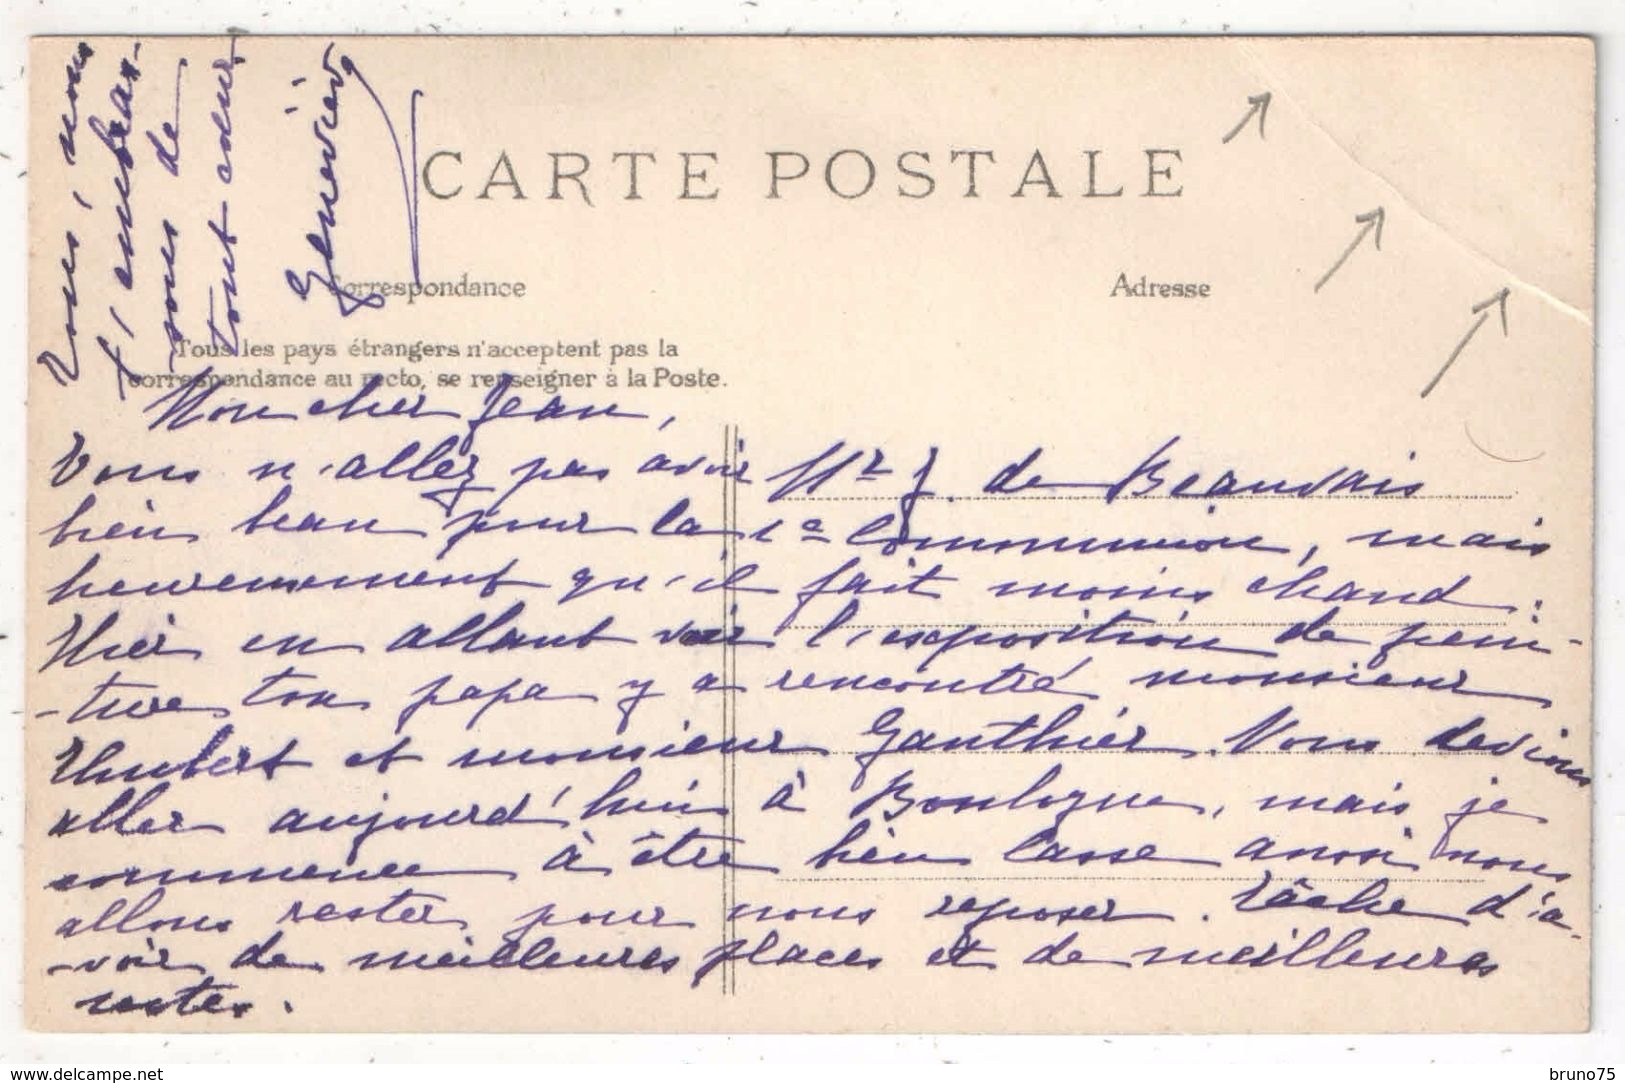 CARTE POSTALE
Correspondance
Adresse
Tous les pays étrangers n'acceptent pas la
correspondance au recto, se renseigner à la Poste.
Mr J. de Beauvais
Mon cher Jean,
Vous n'allez pas avoir
bien beau pour la 1e Communion, mais
heureusement qu'il fait moins chaud.
Hier en allant voir l'exposition de pein-
-ture ton papa y a rencontré monsieur
Humbert et monsieur Gauthier. Nous devions
aller aujourd'hui à Boulogne, mais je
commence à être bien lasse aussi nous
allons rester pour nous reposer. Tâche d'a-
-voir de meilleures places et de meilleures
notes.
Tous, nous
t'embras-
-sons de
tout cœur
Geneviève
delcampe.net
bruno75